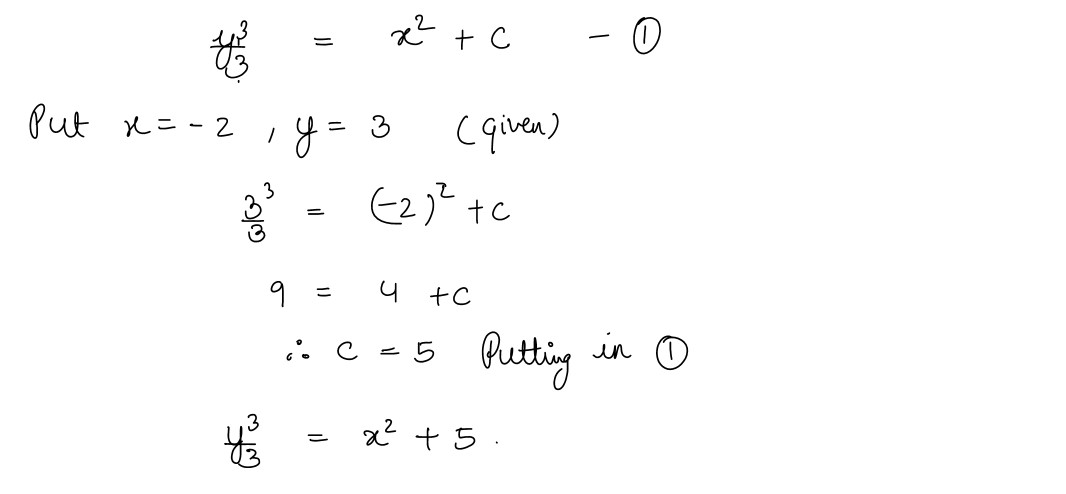 y³/3 = x² + C - ①
Put x = -2 , y = 3 (given)
3³/3 = (-2)² + C
9 = 4 + C
∴ C = 5 Putting in ①
y³/3 = x² + 5 .